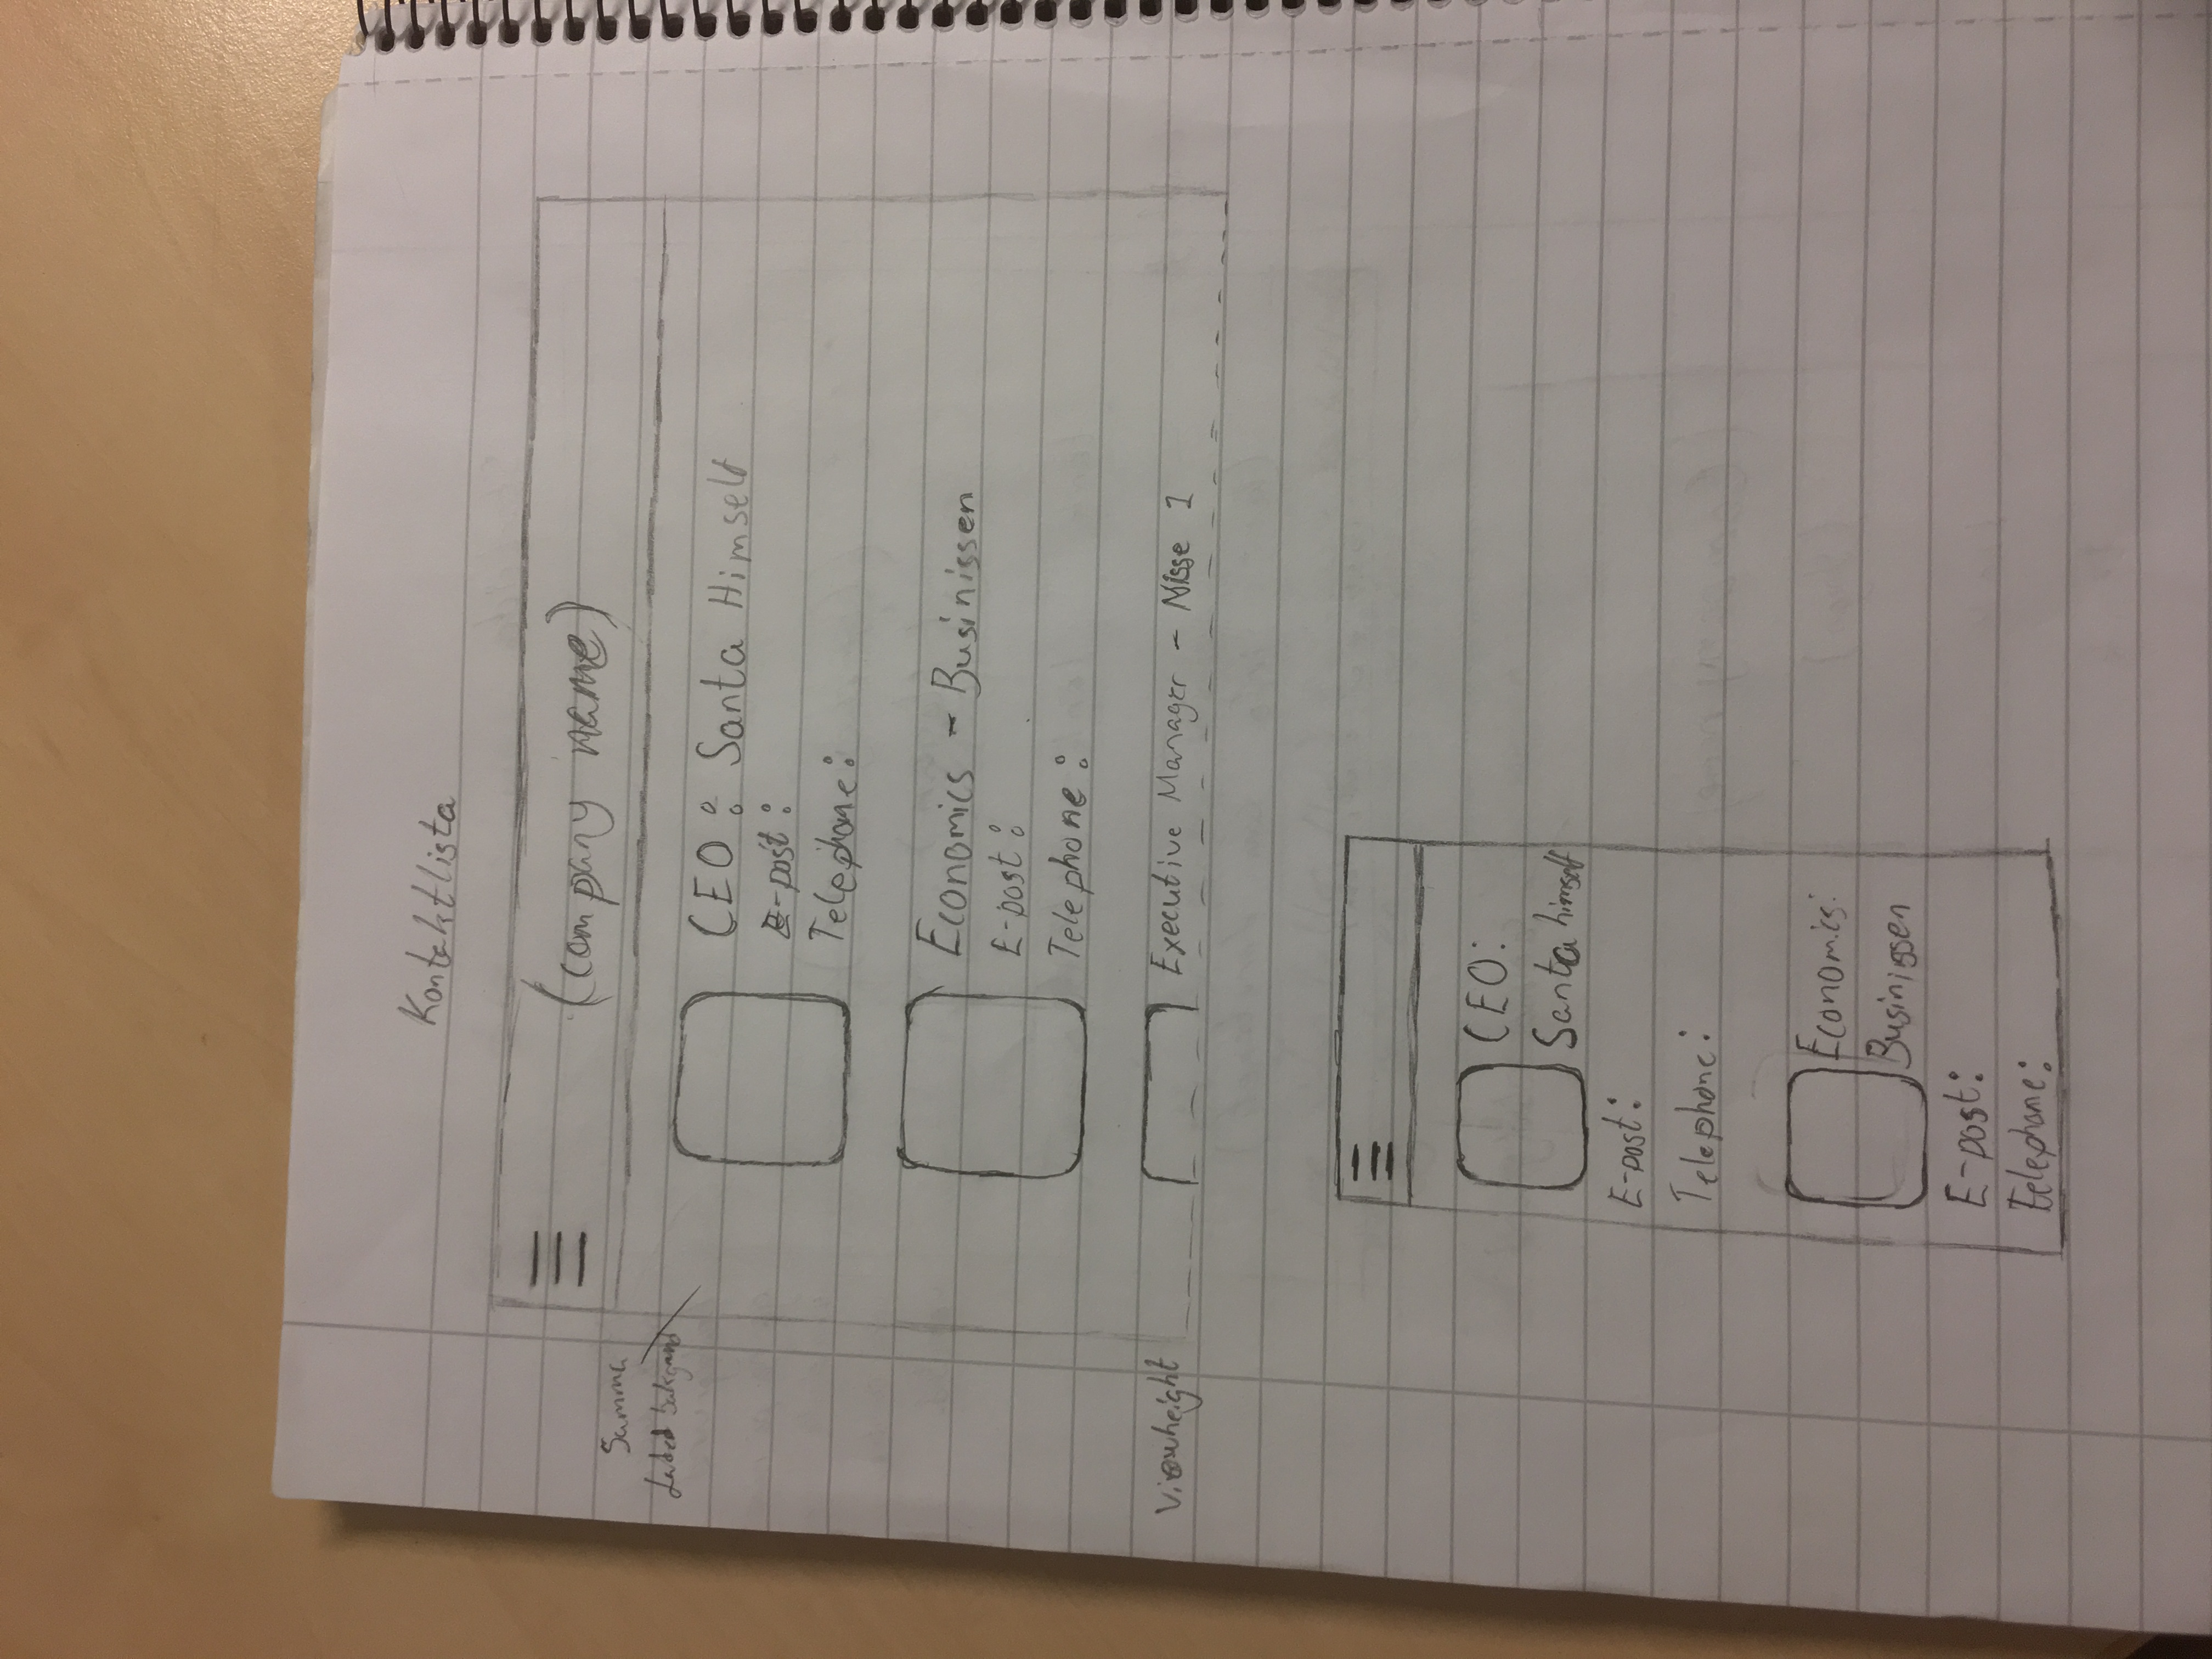 Kontaktlista
(company name)
Samma
bakgrund
CEO : Santa Himself
E-post :
Telephone :
Economics - Businissen
E-post :
Telephone :
Viewheight
Executive Manager - Nisse 1
CEO:
Santa himself
E-post:
Telephone:
Economics:
Businissen
E-post:
Telephone: